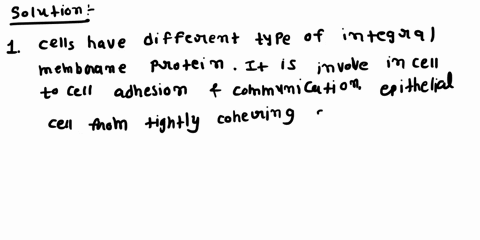 Solution:-
1. cells have different type of integral
membrane protein. It is involve in cell
to cell adhesion & communication, epithelial
cell from tightly cohering